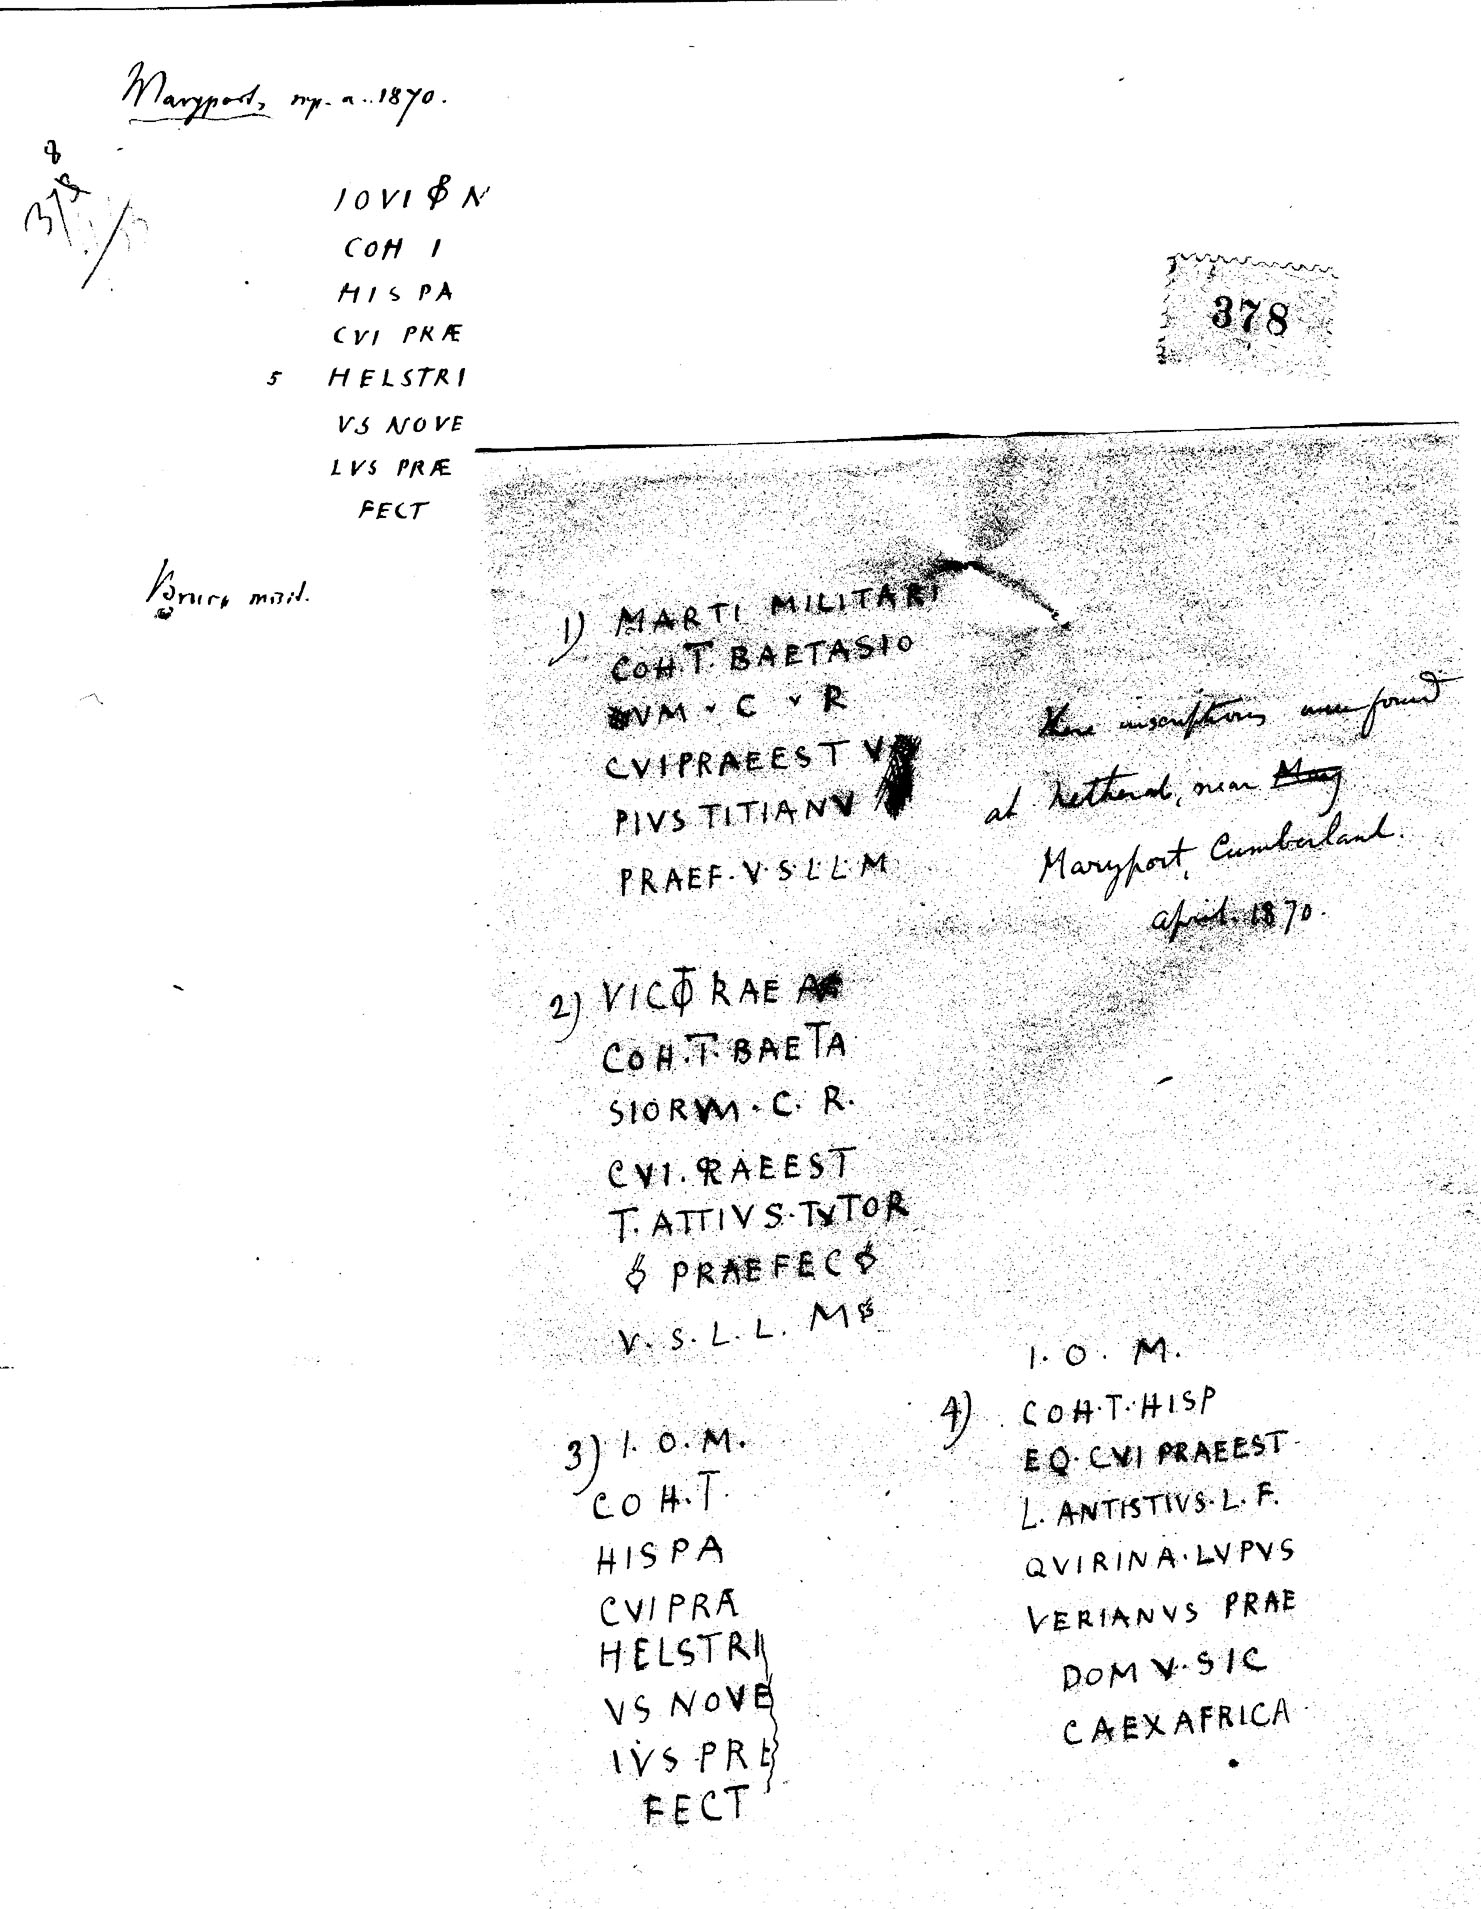 Maryport, rep. a. 1870.
378
JOVI O N
COH I
HISPA
CVI PRÆ
5 HELSTRI
VS NOVE
LVS PRÆ
FECT
Bruce misit.
378
1) MARTI MILITARI
COH T. BAETASIO
VM . C . R
CVIPRAEEST V
PIVS TITIANV
PRAEF. V. S. L L. M
These inscriptions were found
at Netheral, near
Maryport, Cumberland.
April. 1870.
2) VICTORAE
COH. T. BAETA
SIORVM. C. R.
CVI. PRAEEST
T. ATTIVS. TVTOR
PRAEFEC
V. S. L. L. M
3) I. O. M.
COH. T.
HISPA
CVIPRA
HELSTRI
VS NOVE
IVS PRE
FECT
4) I. O. M.
COH. T. HISP
EQ. CVI PRAEEST
L. ANTISTIVS. L. F.
QVIRINA. LVPVS
VERIANVS PRAE
DOMV. SIC
CAEXAFRICA